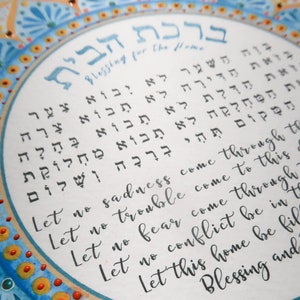 ברכת הבית
Blessing for the Home
בְּזֶה הַשַּׁעַר לֹא יָבוֹא צַעַר
הַדִּירָה לֹא תָבוֹא צָרָה
לֹא תָבוֹא בֶּהָלָה
הַמַּחְלָקָה לֹא תָבוֹא מַחְלוֹקֶת
הַמָּקוֹם תְּהִי בְרָכָה וְשָׁלוֹם
Let no sadness come through
Let no trouble come to this
Let no fear come through
Let no conflict be in
Let this home be
Blessing and